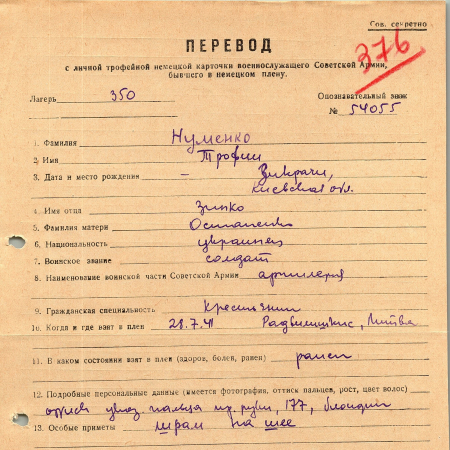 Сов. секретно
376
ПЕРЕВОД
с личной трофейной немецкой карточки военнослужащего Советской Армии,
бывшего в немецком плену.
Лагерь 350
Опознавательный знак
№ 54055
1. Фамилия Нуменко
2. Имя Трофим
3. Дата и место рождения –
Киевская обл.
4. Имя отца Зинко
5. Фамилия матери Остапенко
6. Национальность украинец
7. Воинское звание солдат
8. Наименование воинской части Советской Армии артиллерия
9. Гражданская специальность Крестьянин
10. Когда и где взят в плен 28.7.41 Радвилишкис, Литва
11. В каком состоянии взят в плен (здоров, болен, ранен) ранен
12. Подробные персональные данные (имеется фотография, оттиск пальцев, рост, цвет волос)
оттиск указ. пальца пр. руки, 177, блондин
13. Особые приметы шрам на шее